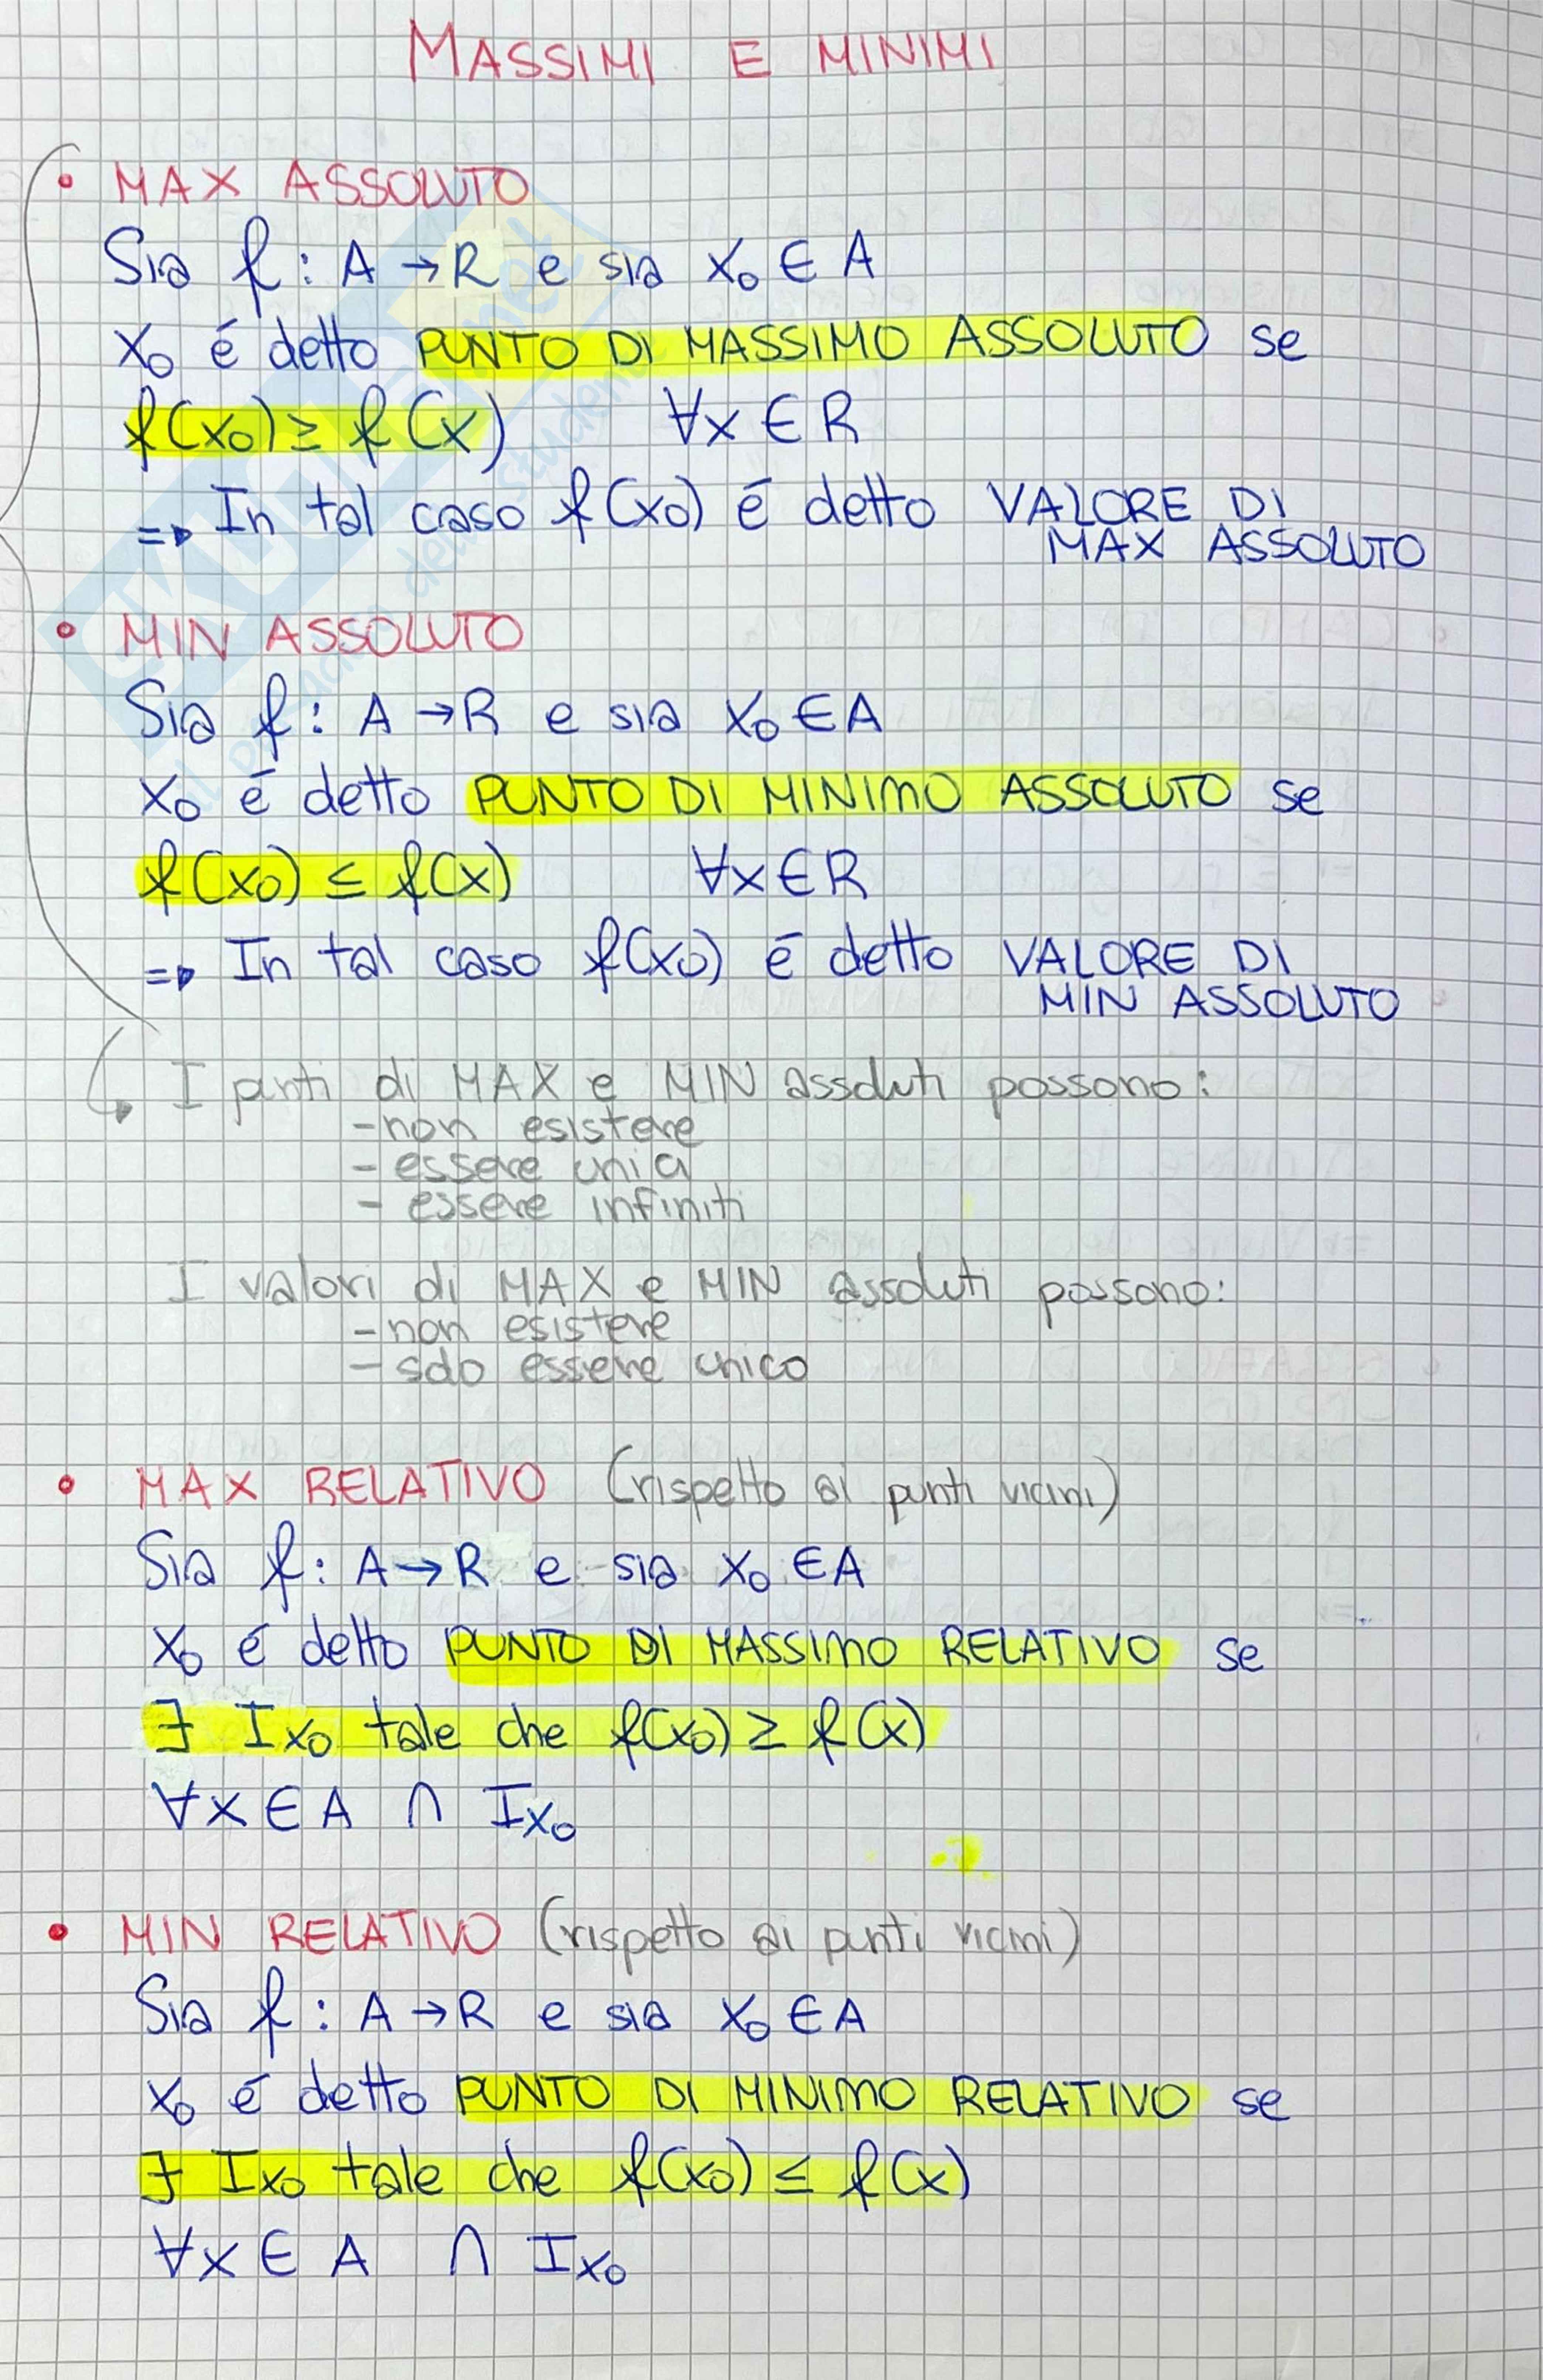 MASSIMI E MINIMI
• MAX ASSOLUTO
Sia f: A → R e sia x₀ ∈ A
x₀ é detto PUNTO DI MASSIMO ASSOLUTO se
f(x₀) ≥ f(x) ∀x ∈ R
=> In tal caso f(x₀) é detto VALORE DI
MAX ASSOLUTO
• MIN ASSOLUTO
Sia f: A → R e sia x₀ ∈ A
x₀ é detto PUNTO DI MINIMO ASSOLUTO se
f(x₀) ≤ f(x) ∀x ∈ R
=> In tal caso f(x₀) é detto VALORE DI
MIN ASSOLUTO
I punti di MAX e MIN assoluti possono:
- non esistere
- essere unici
- essere infiniti
I valori di MAX e MIN assoluti possono:
- non esistere
- solo essere unico
• MAX RELATIVO (rispetto ai punti vicini)
Sia f: A → R e sia x₀ ∈ A
x₀ é detto PUNTO DI MASSIMO RELATIVO se
∃ Ix₀ tale che f(x₀) ≥ f(x)
∀x ∈ A ∩ Ix₀
• MIN RELATIVO (rispetto ai punti vicini)
Sia f: A → R e sia x₀ ∈ A
x₀ é detto PUNTO DI MINIMO RELATIVO se
∃ Ix₀ tale che f(x₀) ≤ f(x)
∀x ∈ A ∩ Ix₀